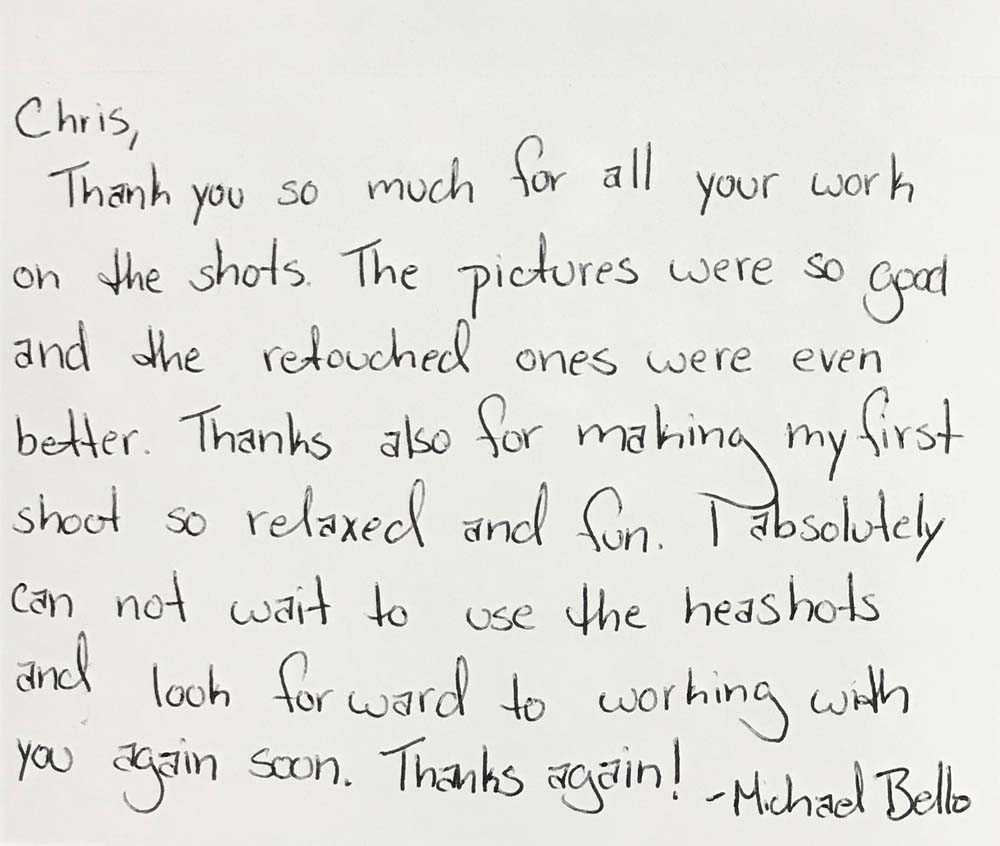 Chris,
Thank you so much for all your work
on the shots. The pictures were so good
and the retouched ones were even
better. Thanks also for making my first
shoot so relaxed and fun. I absolutely
can not wait to use the heashots
and look forward to working with
you again soon. Thanks again!
-Michael Bello